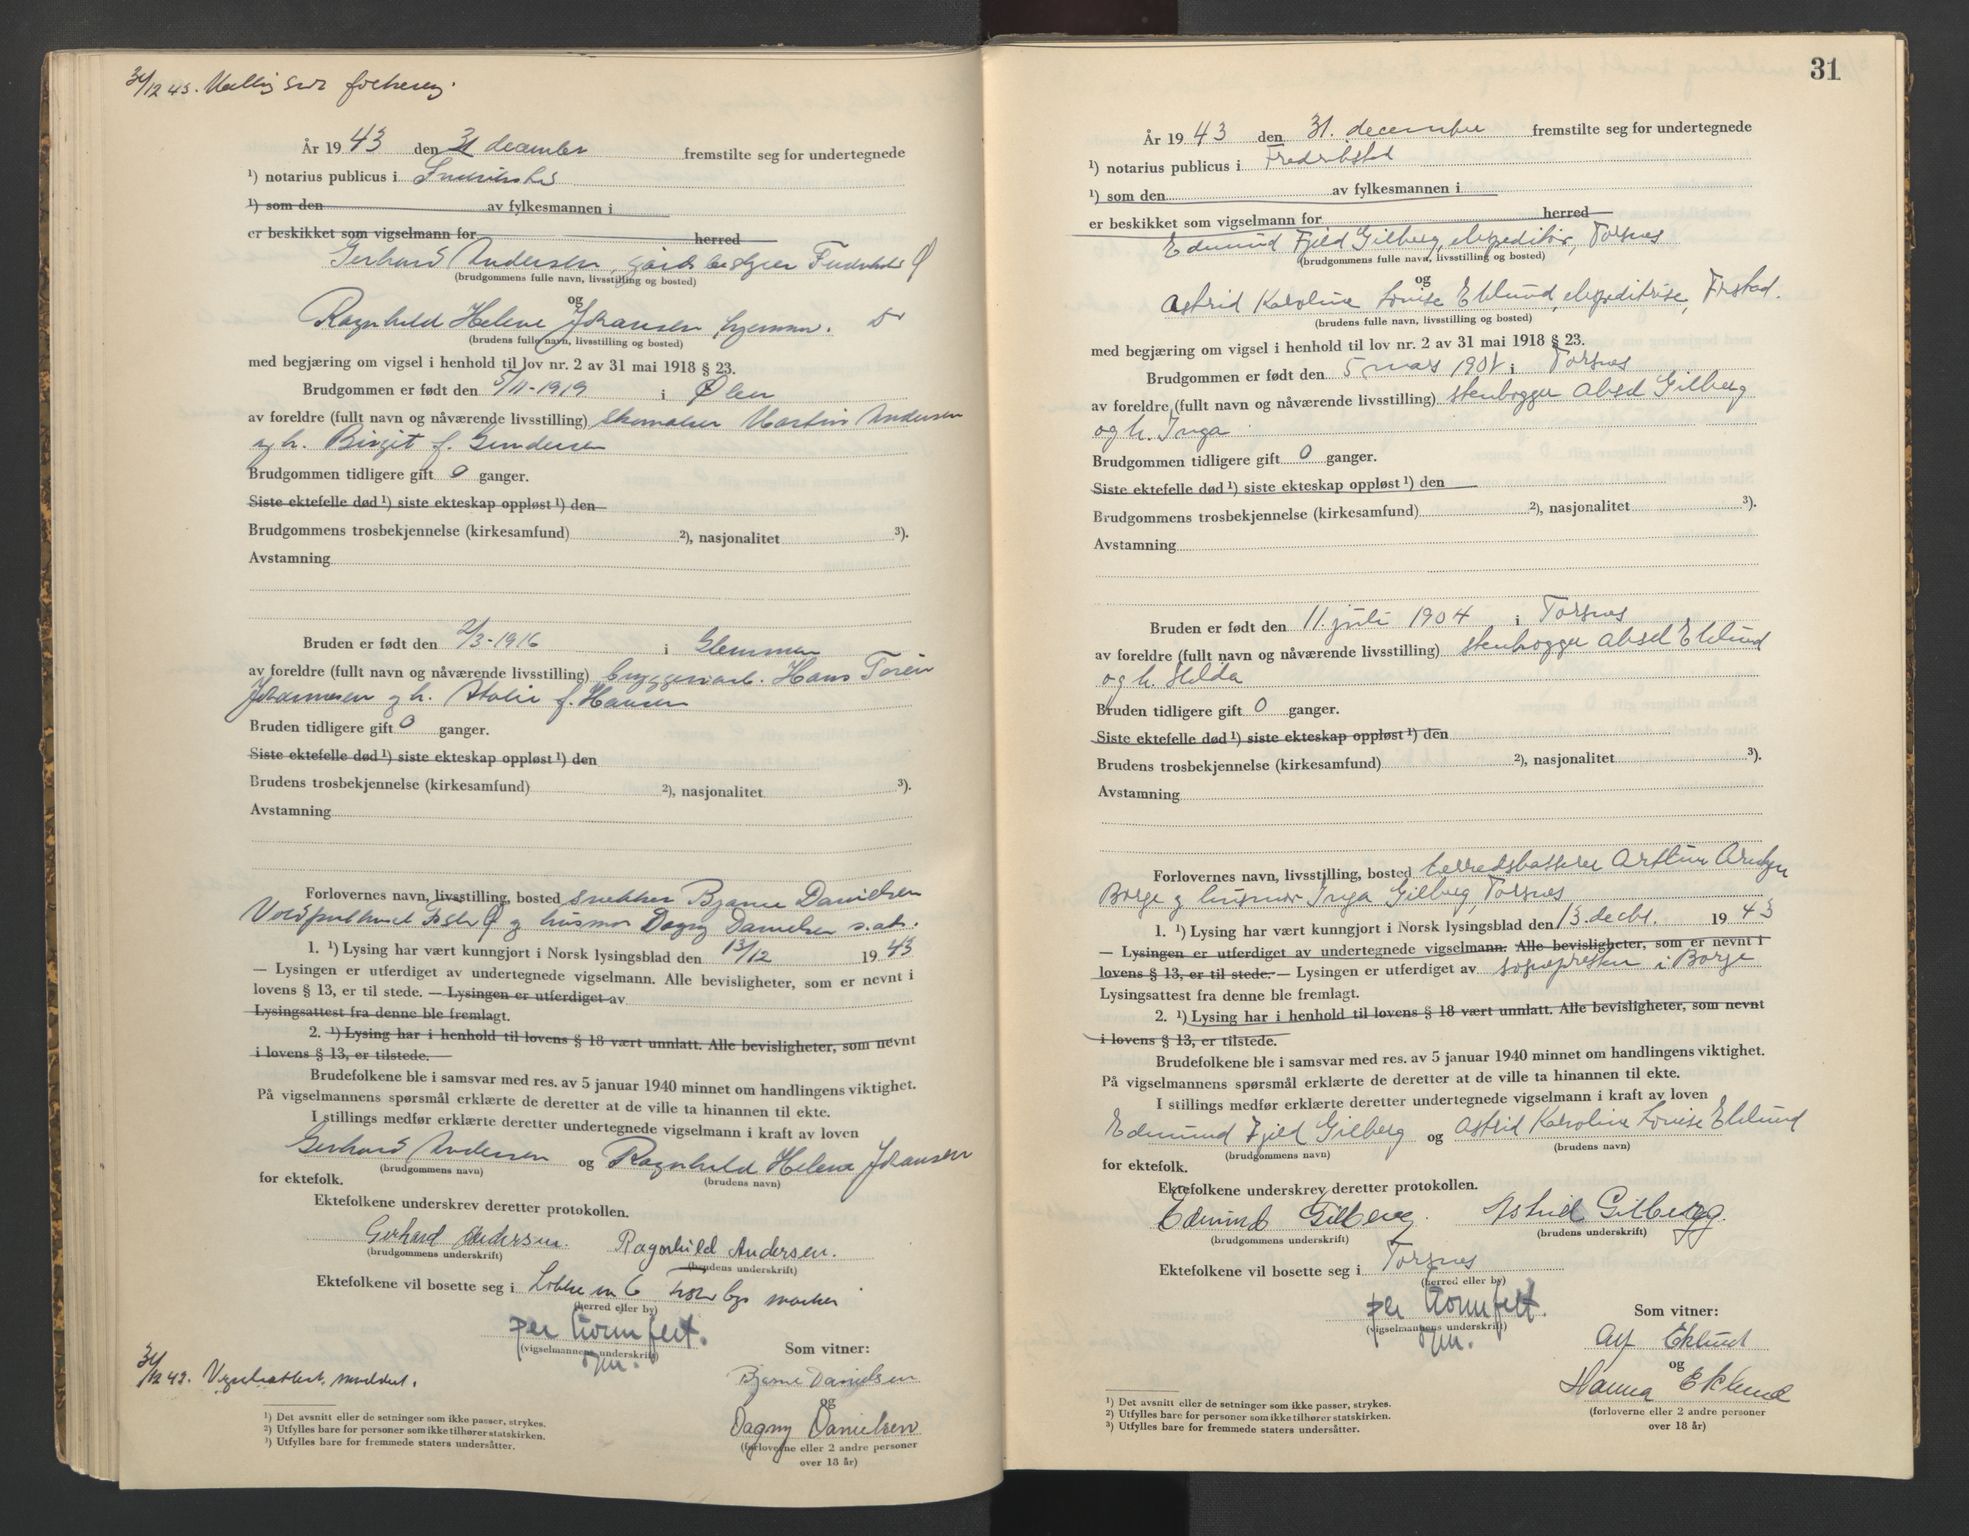 31/12 43.
År 1943 den 31 december fremstilte seg for undertegnede
¹) notarius publicus i
¹) som den av fylkesmannen i
er beskikket som vigselmann for herred
Gerhard Andersen,
(brudgommens fulle navn, livsstilling og bosted)
og
Ragnhild Helene Johansen hjemmev.
(brudens fulle navn, livsstilling og bosted)
med begjæring om vigsel i henhold til lov nr. 2 av 31 mai 1918 § 23.
Brudgommen er født den 5/11-1919 i Ølen
av foreldre (fullt navn og nåværende livsstilling) skomaker Martin Andersen
og h. Birgit f. Gundersen
Brudgommen tidligere gift 0 ganger.
Siste ektefelle død ¹) siste ekteskap oppløst ¹) den
Brudgommens trosbekjennelse (kirkesamfund) ²), nasjonalitet ³).
Avstamning
Bruden er født den 2/3-1916 i Glemmen
av foreldre (fullt navn og nåværende livsstilling) bryggeriarb. Hans Torin
Johannesen og h. f. Hansen
Bruden tidligere gift 0 ganger.
Siste ektefelle død ¹) siste ekteskap oppløst ¹) den
Brudens trosbekjennelse (kirkesamfund) ²), nasjonalitet ³).
Avstamning
Forlovernes navn, livsstilling, bosted snekker Bjarne Danielsen
og husmor Dagny Danielsen s.st.
1. ¹) Lysing har vært kunngjort i Norsk lysingsblad den 13/12 1943
— Lysingen er utferdiget av undertegnede vigselmann. Alle bevisligheter, som er nevnt i
lovens § 13, er til stede. — Lysingen er utferdiget av
Lysingsattest fra denne ble fremlagt.
2. ¹) Lysing har i henhold til lovens § 18 vært unnlatt. Alle bevisligheter, som nevnt
i lovens § 13, er tilstede. —
Brudefolkene ble i samsvar med res. av 5 januar 1940 minnet om handlingens viktighet.
På vigselmannens spørsmål erklærte de deretter at de ville ta hinannen til ekte.
I stillings medfør erklærte deretter undertegnede vigselmann i kraft av loven
Gerhard Andersen og Ragnhild Helene Johansen
(brudgommens navn) (brudens navn)
for ektefolk.
Ektefolkene underskrev deretter protokollen.
Gerhard Andersen. Ragnhild Andersen.
(brudgommens underskrift) (brudens underskrift)
Ektefolkene vil bosette seg i
(herred eller by)
(vigselmannens underskrift)
Som vitner:
Bjarne Danielsen
og
Dagny Danielsen
(forloverne eller 2 andre personer
over 18 år)
31/12 43. Vigselsattest
¹) Det avsnitt eller de setninger som ikke passer, strykes.
²) Utfylles bare for personer som ikke tilhører statskirken.
³) Utfylles bare for fremmede staters undersåtter.
31
År 1943 den 31. december fremstilte seg for undertegnede
¹) notarius publicus i Fredrikstad
¹) som den av fylkesmannen i
er beskikket som vigselmann for herred
Edmund Fjeld Gilberg, ekspeditør, Torsnes
(brudgommens fulle navn, livsstilling og bosted)
og
Astrid Karoline Lovise Eklund, ekspeditrise, Frstad.
(brudens fulle navn, livsstilling og bosted)
med begjæring om vigsel i henhold til lov nr. 2 av 31 mai 1918 § 23.
Brudgommen er født den 5 mars 1901 i Torsnes
av foreldre (fullt navn og nåværende livsstilling) stenhogger Aksel Gilberg
og h. Inga
Brudgommen tidligere gift 0 ganger.
Siste ektefelle død ¹) siste ekteskap oppløst ¹) den
Brudgommens trosbekjennelse (kirkesamfund) ²), nasjonalitet ³).
Avstamning
Bruden er født den 11 juli 1904 i Torsnes
av foreldre (fullt navn og nåværende livsstilling) stenhogger Aksel Eklund
og h. Hilda
Bruden tidligere gift 0 ganger.
Siste ektefelle død ¹) siste ekteskap oppløst ¹) den
Brudens trosbekjennelse (kirkesamfund) ²), nasjonalitet ³).
Avstamning
Forlovernes navn, livsstilling, bosted herredskasserer Arthur
Borge og husmor Inga Gilberg, Torsnes
1. ¹) Lysing har vært kunngjort i Norsk lysingsblad den 13. decbr. 1943
— Lysingen er utferdiget av undertegnede vigselmann. Alle bevisligheter, som er nevnt i
lovens § 13, er til stede. — Lysingen er utferdiget av sognepresten i Borge
Lysingsattest fra denne ble fremlagt.
2. ¹) Lysing har i henhold til lovens § 18 vært unnlatt. Alle bevisligheter, som nevnt
i lovens § 13, er tilstede.
Brudefolkene ble i samsvar med res. av 5 januar 1940 minnet om handlingens viktighet.
På vigselmannens spørsmål erklærte de deretter at de ville ta hinannen til ekte.
I stillings medfør erklærte deretter undertegnede vigselmann i kraft av loven
Edmund Fjeld Gilberg og Astrid Karoline Lovise Eklund
(brudgommens navn) (brudens navn)
for ektefolk.
Ektefolkene underskrev deretter protokollen.
Edmund Gilberg. Astrid Gilberg.
(brudgommens underskrift) (brudens underskrift)
Ektefolkene vil bosette seg i Torsnes
(herred eller by)
(vigselmannens underskrift)
Som vitner:
Alf Eklund
og
Hanna Eklund
(forloverne eller 2 andre personer
over 18 år)
¹) Det avsnitt eller de setninger som ikke passer, strykes.
²) Utfylles bare for personer som ikke tilhører statskirken.
³) Utfylles bare for fremmede staters undersåtter.